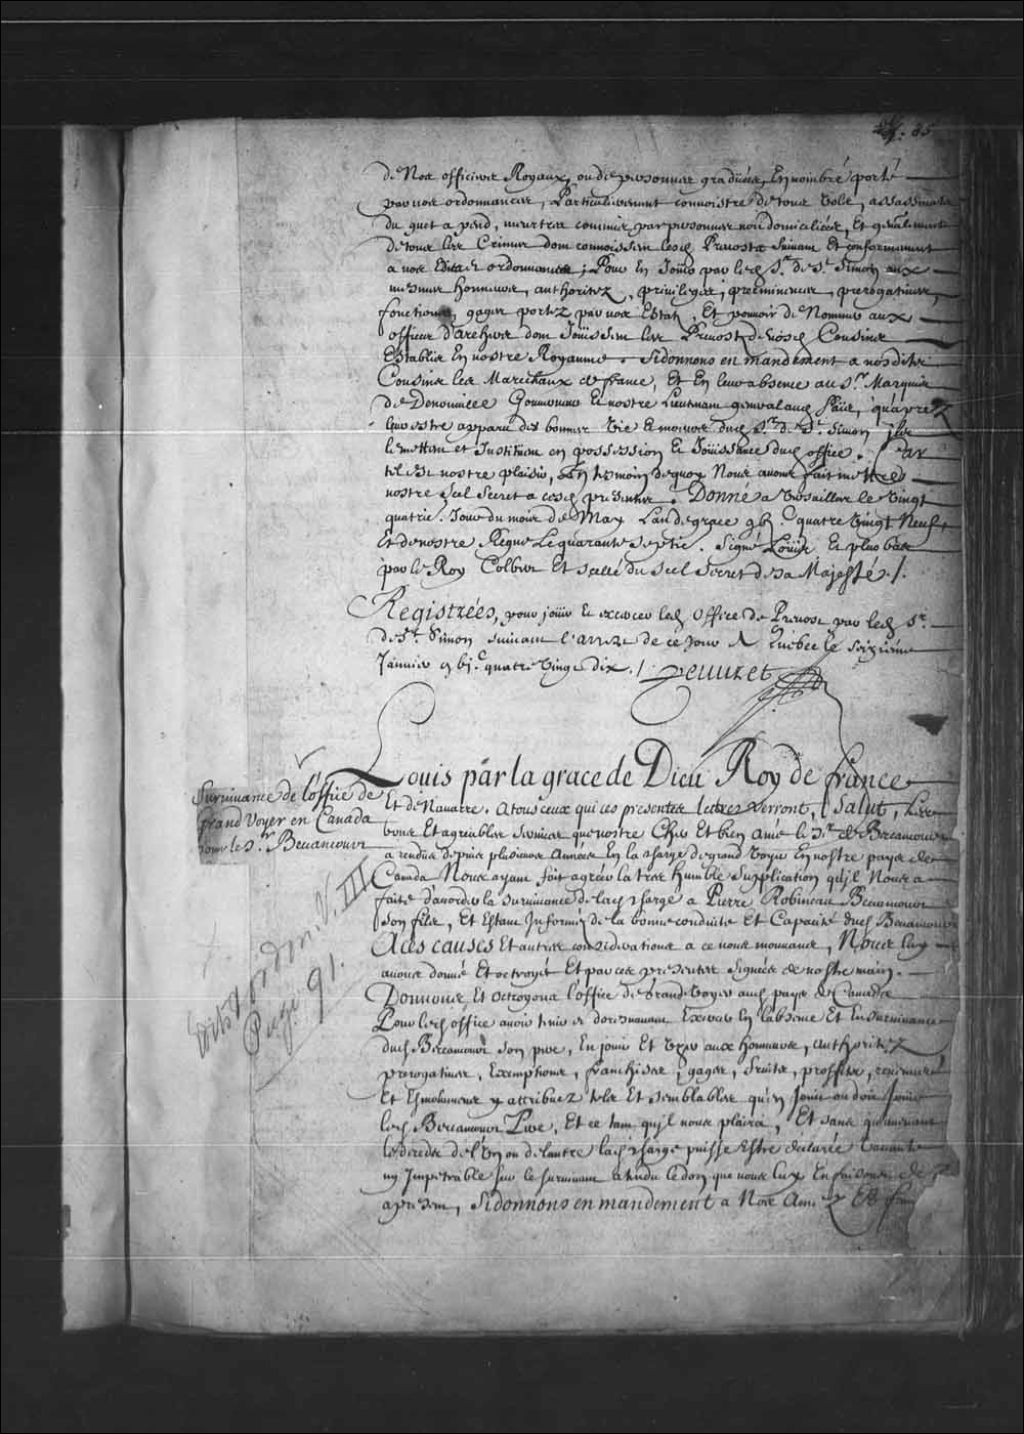 35
de Nos officiers Royaux, ou de personnes graduées, En nombre porté
par nos ordonnances, Particulierement connoistre de tous Vols, assassinats
du guet a pend, meurtres commis par personnes non domiciliées, Et generalement
de tous les Crimes dont connoissent lesd Prevosts suivant Et conformement
a nos Edits et ordonnances; Pour En Joüir par led Sr. de St. Simon aux
mesmes honneurs, authoritez, privileges, preeminences, prerogatives,
fonctions, gages portez par nos Estats, Et pouvoir de Nommer aux
offices d'archers dont Joüissent les Prevosts de nosd Cousins
Establis En nostre Royaume. Sidonnons en mandement a nosdits
Cousins les Marechaux de france, Et En leur absence au Sr. Marquis
de Denonville Gouverneur Et nostre Lieutenant general aud Païs, qu'aprez
luy estre apparu des bonnes Vie Et moeurs dud Sr. de St. Simon Ils
le mettent et Instituent en possession Et Joüissance dud office. Car
tel est nostre plaisir, En temoin dequoy Nous avons fait mettre
nostre Scel Secret a cesd presentes. Donné a Versailles le Vingt
quatrie. Jour du mois de May Lan de grace gbj.c quatre Vingt Neuf
Et de nostre Regne Le quarante septie. Signé Loüis Et plus bas
par le Roy Colbert Et scellé du Scel Secret de sa Majesté ./.
Registrées, pour joüir Et exercer led Office de Prevost par led Sr.
de St. Simon suivant l'arrest de ce Jour A Quebec le seizieme
Janvier gbj.c quatre Vingt dix ./. Peuuret
Louis par la grace de Dieu Roy de france
Survivance de l'office de
grand Voyer en Canada
pour le Sr. Becancourt
Et de Navarre. A tous ceux qui ces presentes lettres Verront, Salut, Les
bons Et agreables services que nostre Cher Et bien Amé le Sr. de Becancourt
a rendus depuis plusieurs Années En la charge de grand Voyer En nostre pays de
Canada Nous ayant fait agréer la tres humble supplication qu'il Nous a
faite d'accorder la survivance de lad charge a Pierre Robineau Becancourt
son fils, Et Estant Informé de la bonne conduite Et Capacité dud Becancourt
A ces causes Et autres considerations a ce nous mouvans, Nous luy
avons donné Et octroyé Et par ces presentes signées de nostre main.
Donnons Et octroyons l'office de Grand Voyer aud pays de Canada
Pour led office avoir tenir et doresnavant Exercer En labsence Et En survivance
dud Becancour son pere, En jouir Et User aux honneurs, authoritez
prerogatives, Exemptions, franchises, gages, fruits, proffits, revenus
Et Esmolumens y attribuez tels Et semblables qu'en Jouit ou doit Jouir
led Becancour Pere, Et ce tant qu'il nous plaira, Et sans
le deceds de l'Un ou de lautre lad charge puisse Estre declarée Vacante
ny Impetrable sur le survivant attendu le don que nous luy En faisons
apresent, Sidonnons en mandement a Nos Amez Et
Edits & Ordon. V. III
Page 91.